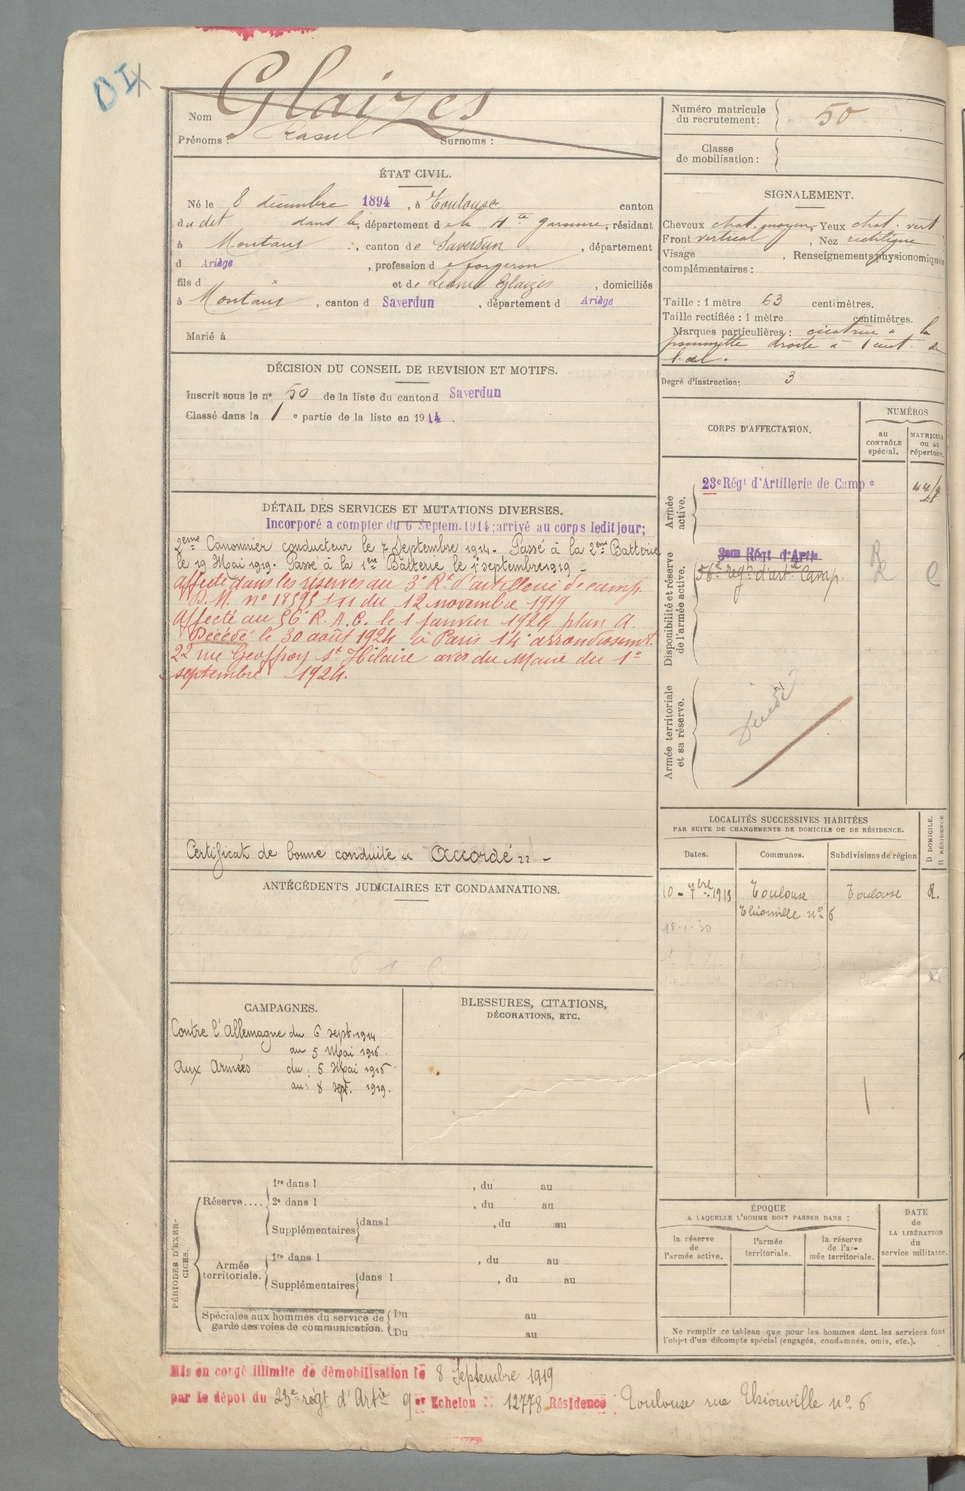 Nom Glaizes
Prénoms : Raoul Surnoms :
ÉTAT CIVIL.
Né le 8 décembre 1894, à Toulouse canton
du dit dans le, département de la Hte garonne, résidant
à Montaut, canton de Saverdun, département
d Ariège, profession de forgeron
fils d " et de Léonie Glaizes, domiciliés
à Montaut, canton d Saverdun, département d Ariège
Marié à
DÉCISION DU CONSEIL DE REVISION ET MOTIFS.
Inscrit sous le no 50 de la liste du canton d Saverdun
Classé dans la 1 e partie de la liste en 1914.
DÉTAIL DES SERVICES ET MUTATIONS DIVERSES.
Incorporé a compter du 6 Septem. 1914; arrivé au corps ledit jour;
2eme Canonnier conducteur le 7 Septembre 1914. Passé à la 2me Batterie
le 19 Mai 1919. Passé à la 1ere Batterie le 1 septembre 1919 -
Affecté dans les réserves au 3e Rt d'artillerie de camp.
D.M. no 18595 du 12 novembre 1919
Affecté au 56 R.A.C. le 1 janvier 1924 plan A.
Décédé le 30 août 1924 à Paris 14e arrondissemt.
22 rue Geoffroy St Hilaire avis du Maire du 1er
septembre 1924.
Certificat de bonne conduite "Accordé" -
ANTÉCÉDENTS JUDICIAIRES ET CONDAMNATIONS.
CAMPAGNES.
Contre l'Allemagne du 6 sept. 1914
au 5 Mai 1916
Aux Armées du 5 Mai 1916
au 8 sept. 1919.
BLESSURES, CITATIONS,
DÉCORATIONS, ETC.
PÉRIODES D'EXERCICES.
Réserve....
1re dans l , du au
2e dans l , du au
Supplémentaires dans l , du au
Armée territoriale.
1re dans l , du au
Supplémentaires dans l , du au
Spéciales aux hommes du service de
garde des voies de communication.
Du au
Du au
Mis en congé illimité de démobilisation le 8 Septembre 1919
par le dépôt du 23e régt d'Artie 9 er Echelon No 12778 Résidence : Toulouse rue Thionville no 6
Numéro matricule
du recrutement : 50
Classe
de mobilisation :
SIGNALEMENT.
Cheveux chat. moyen, Yeux chat. vert
Front vertical, Nez rectiligne
Visage , Renseignements physionomiques
complémentaires :
Taille : 1 mètre 63 centimètres.
Taille rectifiée : 1 mètre centimètres.
Marques particulières : cicatrice à la
pommette droite à 1 cent. de
l'œil.
Degré d'instruction : 3
CORPS D'AFFECTATION.
NUMÉROS
au
CONTRÔLE
spécial.
MATRICULE
ou au
répertoire.
Armée
active.
23e Régt d'Artillerie de Campe
Disponibilité et réserve
de l'armée active.
56e Régt d'art. Camp.
Armée territoriale
et sa réserve.
LOCALITÉS SUCCESSIVES HABITÉES
PAR SUITE DE CHANGEMENTS DE DOMICILE OU DE RÉSIDENCE.
Dates. Communes. Subdivisions de région
D DOMICILE.
R RÉSIDENCE
10 - 7bre 1919 Toulouse Toulouse R.
Thionville no 6
ÉPOQUE
A LAQUELLE L'HOMME DOIT PASSER DANS :
la réserve
de
l'armée active.
l'armée
territoriale.
la réserve
de l'ar-
mée territoriale.
DATE
de
LA LIBÉRATION
du
service militaire.
Ne remplir ce tableau que pour les hommes dont les services font
l'objet d'un décompte spécial (engagés, condamnés, omis, etc.).